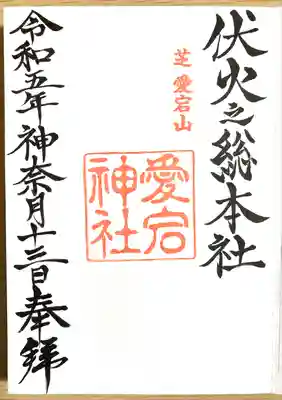 伏火之総本社
芝愛宕山
愛宕神社
令和五年神奈月十三日奉拝